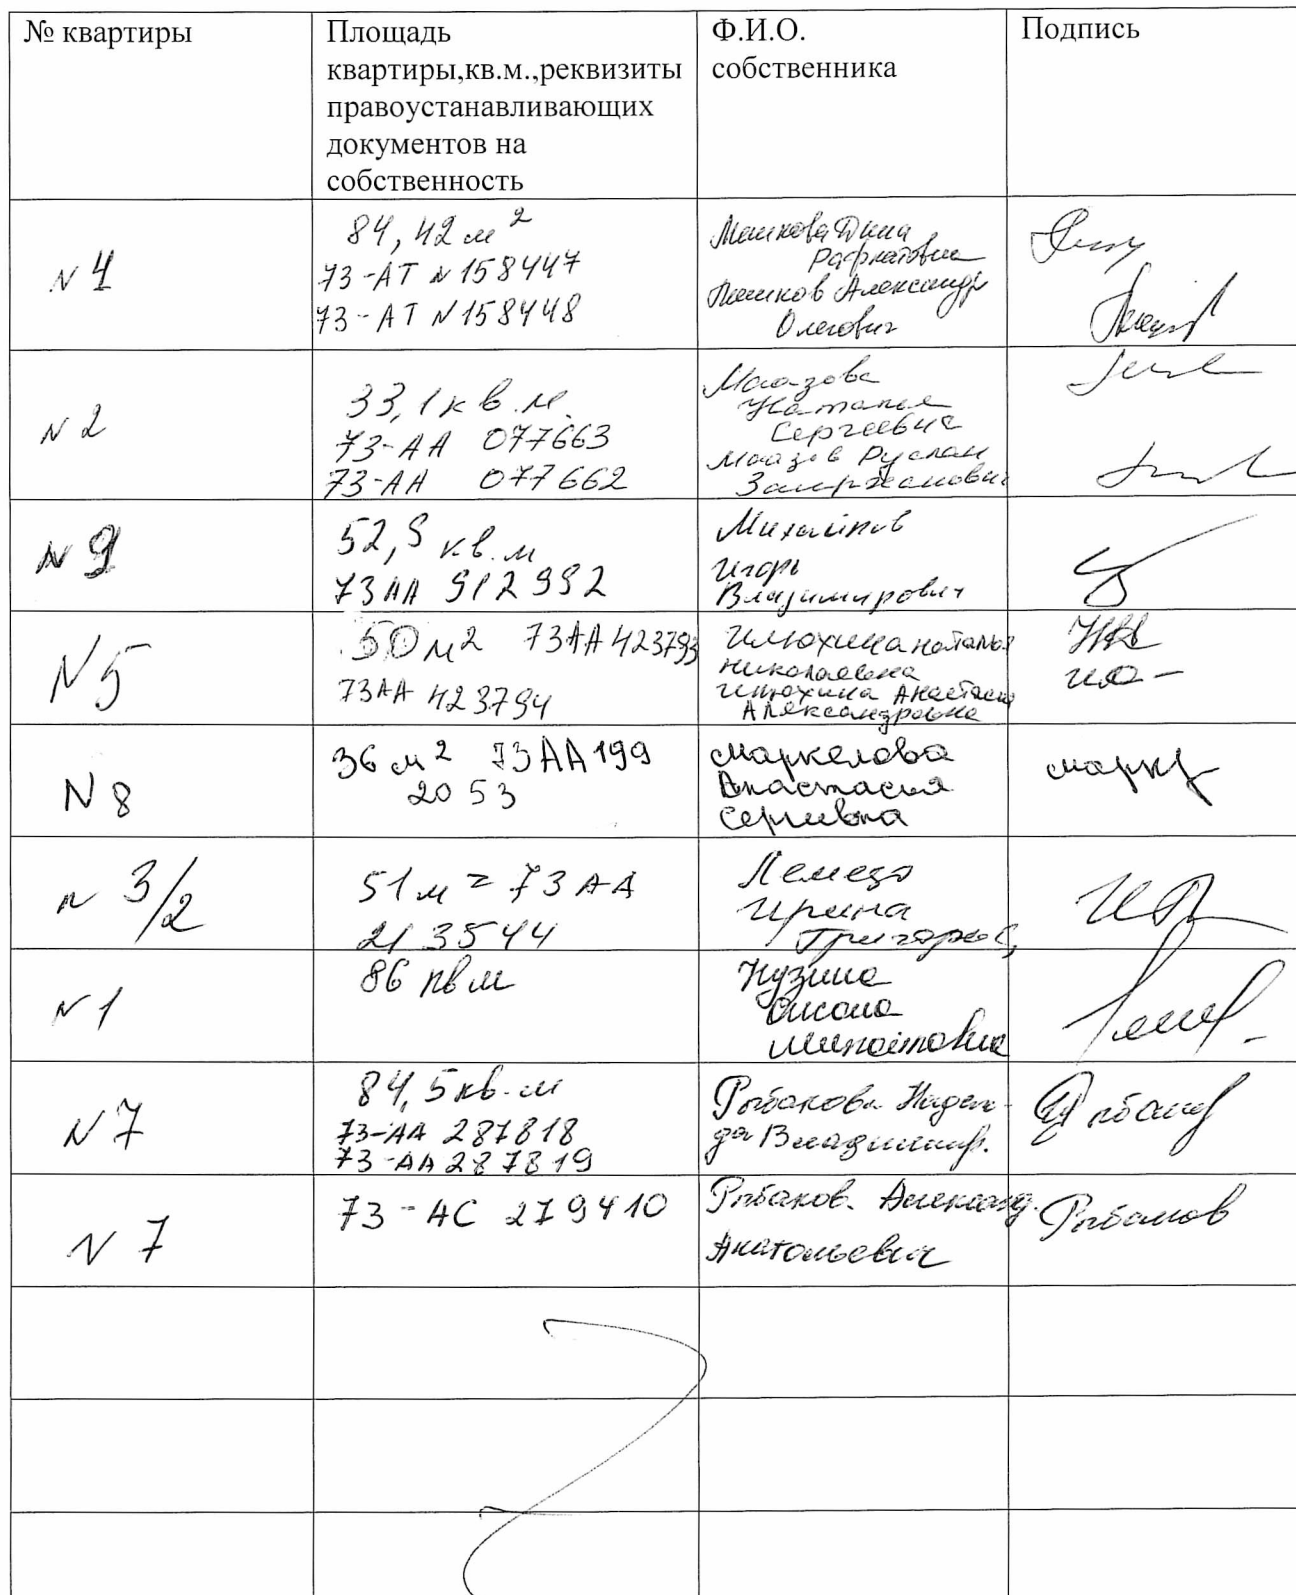 № квартиры
Площадь
квартиры,кв.м.,реквизиты
правоустанавливающих
документов на
собственность
Ф.И.О.
собственника
Подпись
N 4
84,42 м²
73-АТ N 158447
73-АТ N 158448
Дина
Александр
Олегович
N 2
33,1 кв.м.
73-АА 077663
73-АА 077662
Наталья
Сергеевна
Руслан
N 9
52,9 кв.м
73АА 912992
Михайлов
Игорь
Владимирович
N 5
50 м² 73АА 423793
73АА 423794
Илюхина Наталья
Николаевна
Илюхина Анастасия
Александровна
N 8
36 м² 73АА 199
2053
Маркелова
Анастасия
Сергеевна
N 3/2
51 м² 73АА
213544
Ирина
N 1
86 кв м
Кузина
N 7
84,5 кв.м
73-АА 287818
73-АА 287819
Рыбакова Надеж-
да Владимир.
N 7
73-АС 279410
Рыбаков Александ.
Анатольевич
Рыбаков